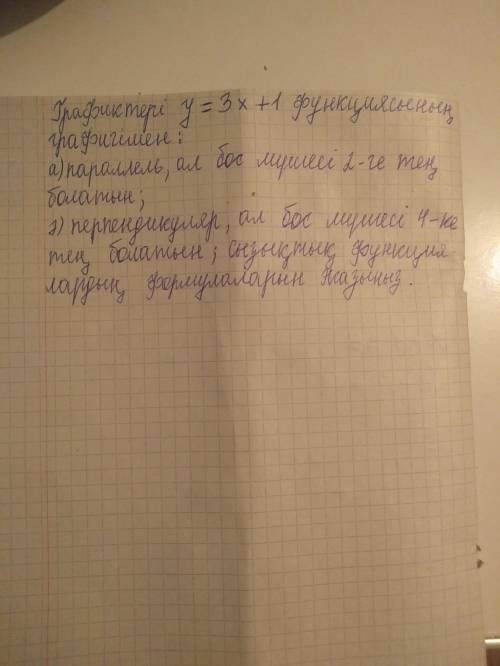 Графиктері y = 3x + 1 функциясының
графигімен:
а) параллель, ал бос мүшесі 2-ге тең
болатын;
ә) перпендикуляр, ал бос мүшесі 4-ке
тең болатын; сызықтық функция
лардың формулаларын жазыңыз.